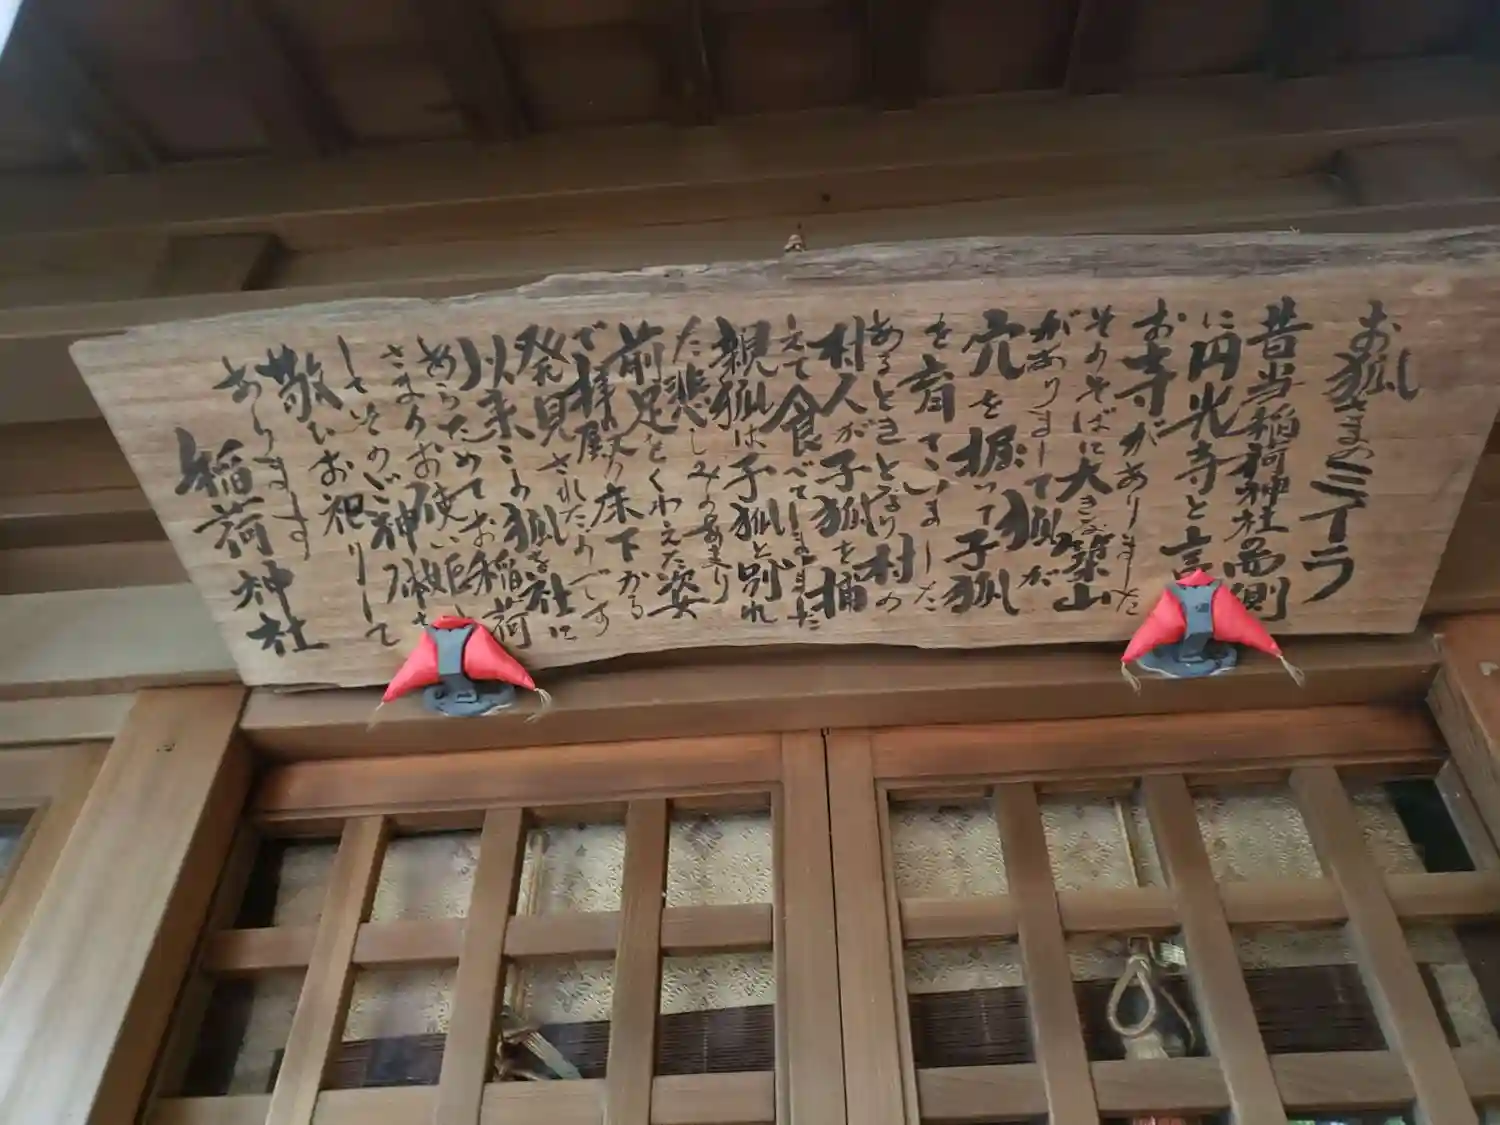 お狐さまのミイラ
昔当稲荷神社の西側
に円光寺と言
お寺がありました
そのそばに大きな築山
がありまして狐が
穴を掘って子狐
を育てていました
あるときとなり村の
村人が子狐を捕
えて食べてしまいました
親狐は子狐と別れ
た悲しみのあまり
前足をくわえた姿
で拝殿の床下から
発見されたのです
以来この狐を社に
あらためてお稲荷
さまのお使い姫
しさまのご神体さ
敬いお祀りして
あります
稲荷神社